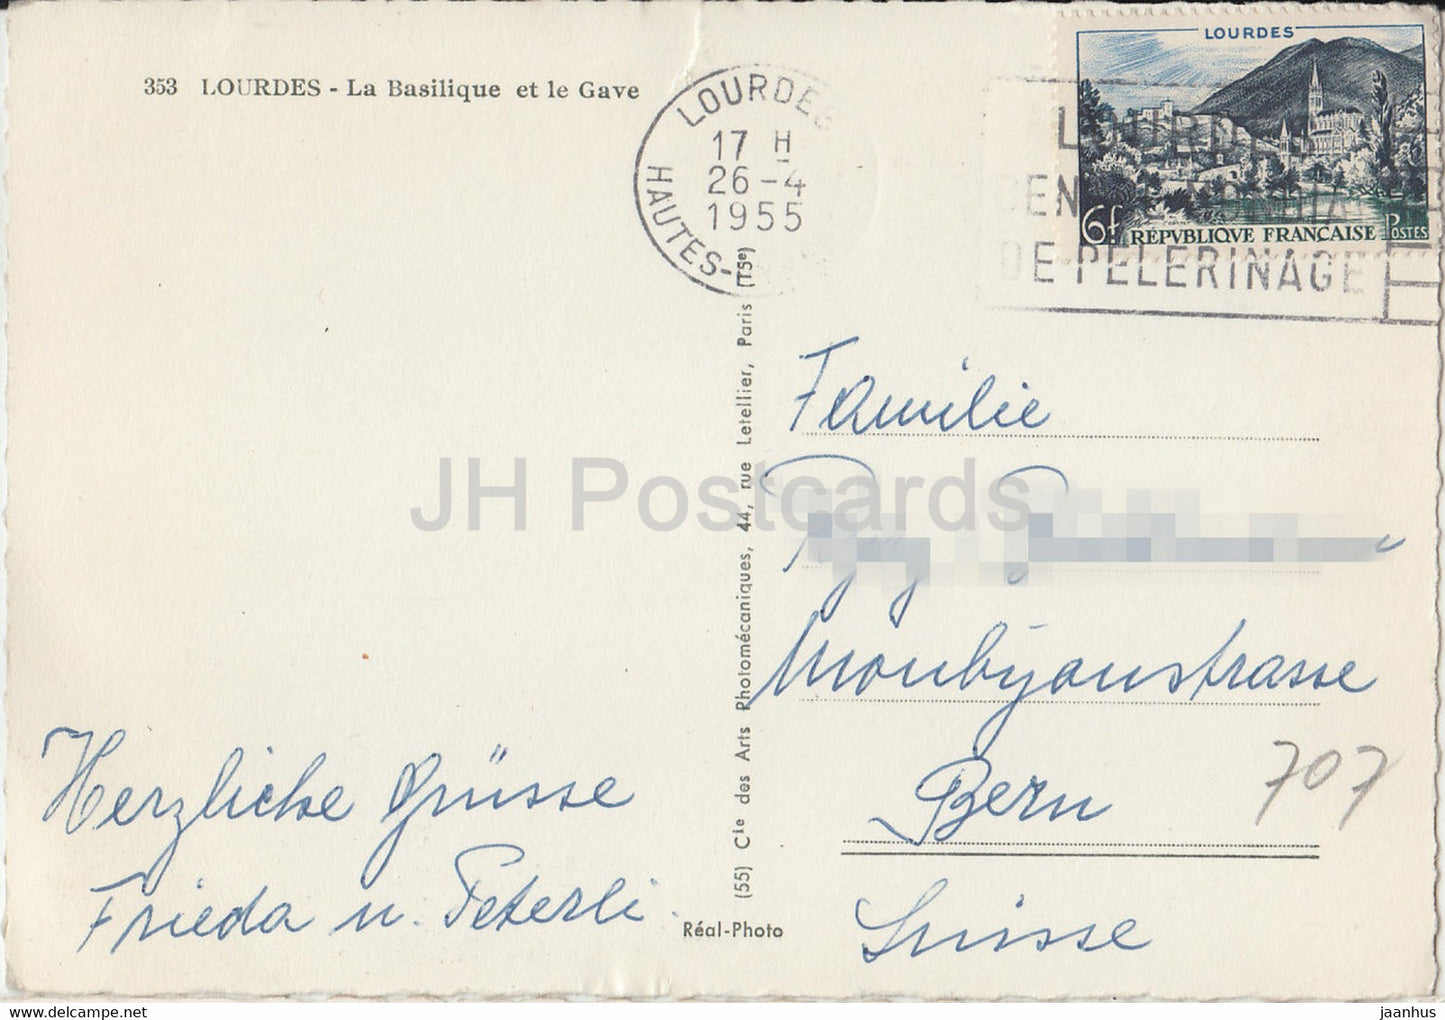 353 LOURDES - La Basilique et le Gave
LOURDES
17 H
26-4
1955
HAUTES-
LOURDES
6f RÉPVBLIQVE FRANÇAISE POSTES
LOURDES
DE PELERINAGE
(55) Cie des Arts Photomécaniques, 44, rue Letellier, Paris (15e)
Réal-Photo
JH Postcards
Familie
Monbijoustrasse
Bern
Suisse
707
Herzliche Grüsse
Frieda u. Peterli.
www.delcampe.net
jaanhus